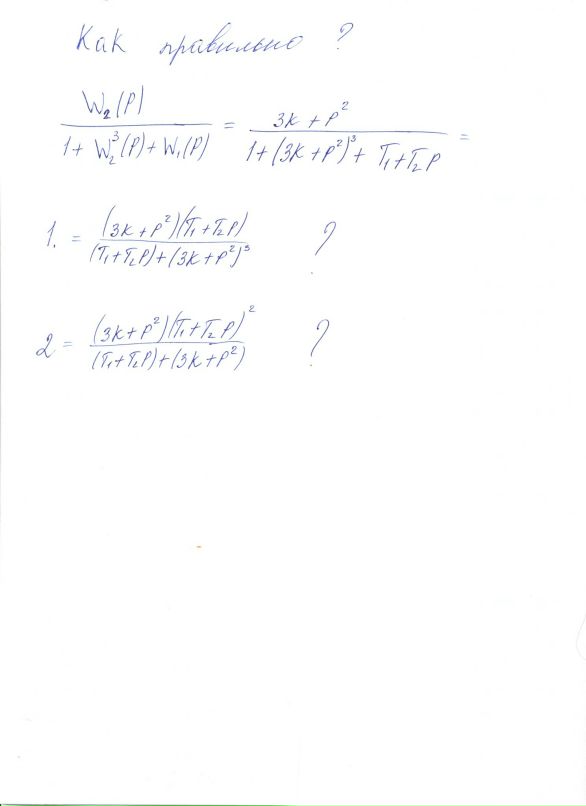 Как правильно ?
W₂(P) / (1 + W₂³(P) + W₁(P)) = (3K + P²) / (1 + (3K + P²)³ + T₁ + T₂P) =
1. = (3K + P²)(T₁ + T₂P) / ((T₁ + T₂P) + (3K + P²)³) ?
2 = (3K + P²)(T₁ + T₂P)² / ((T₁ + T₂P) + (3K + P²)) ?